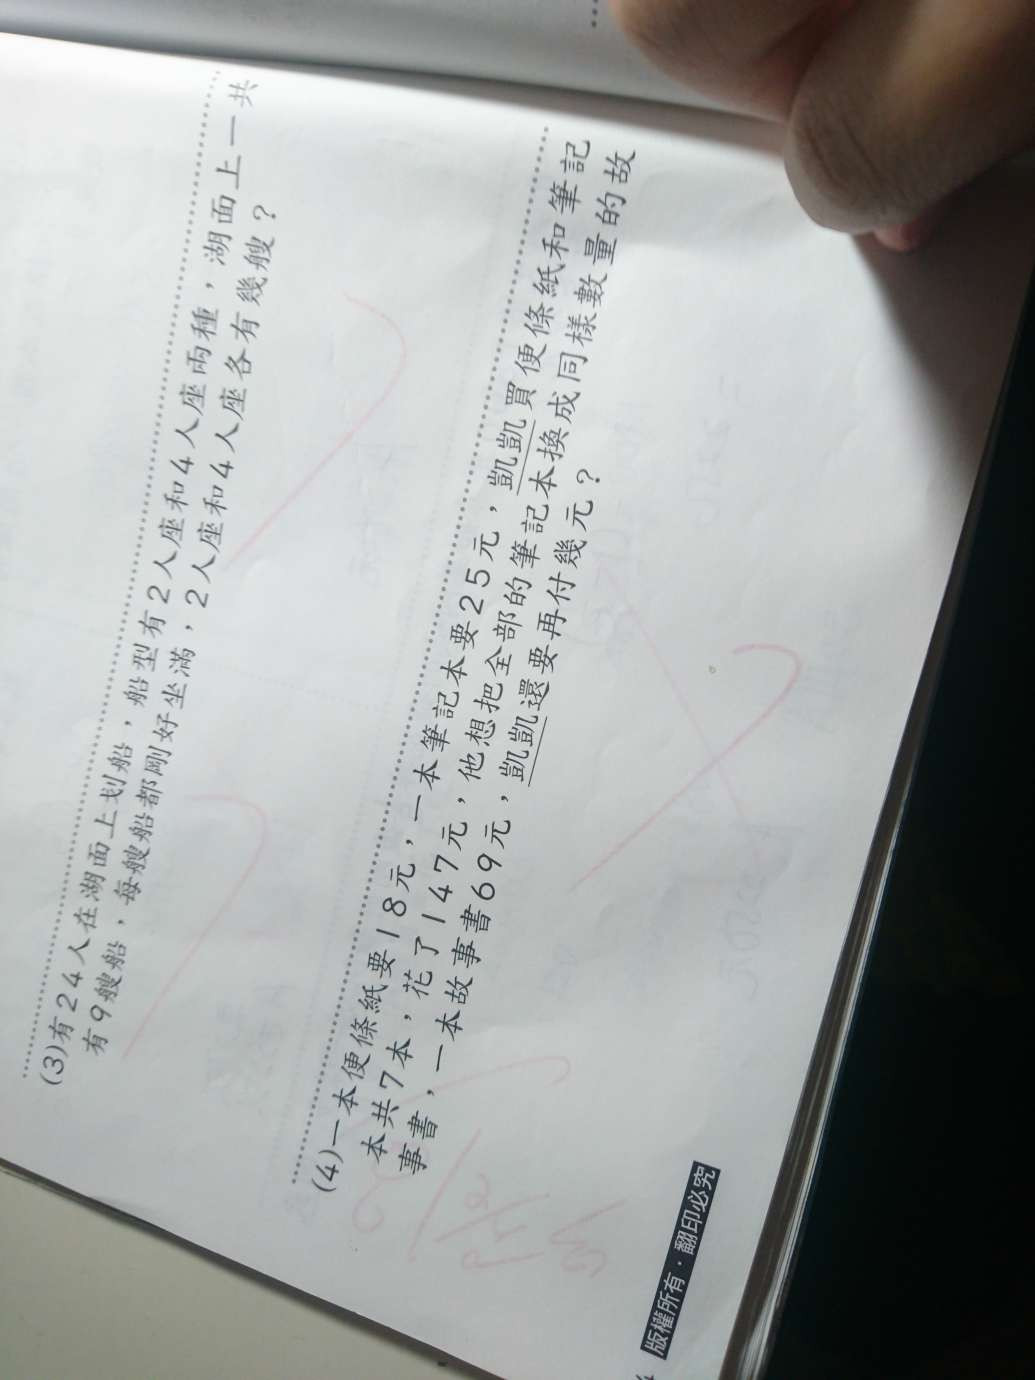 (3)有24人在湖面上划船，船型有2人座和4人座兩種，湖面上一共
有9艘船，每艘船都剛好坐滿，2人座和4人座各有幾艘？
(4)一本便條紙要18元，一本筆記本要25元，凱凱買便條紙和筆記
本共7本，花了147元，他想把全部的筆記本換成同樣數量的故
事書，一本故事書69元，凱凱還要再付幾元？
版權所有．翻印必究